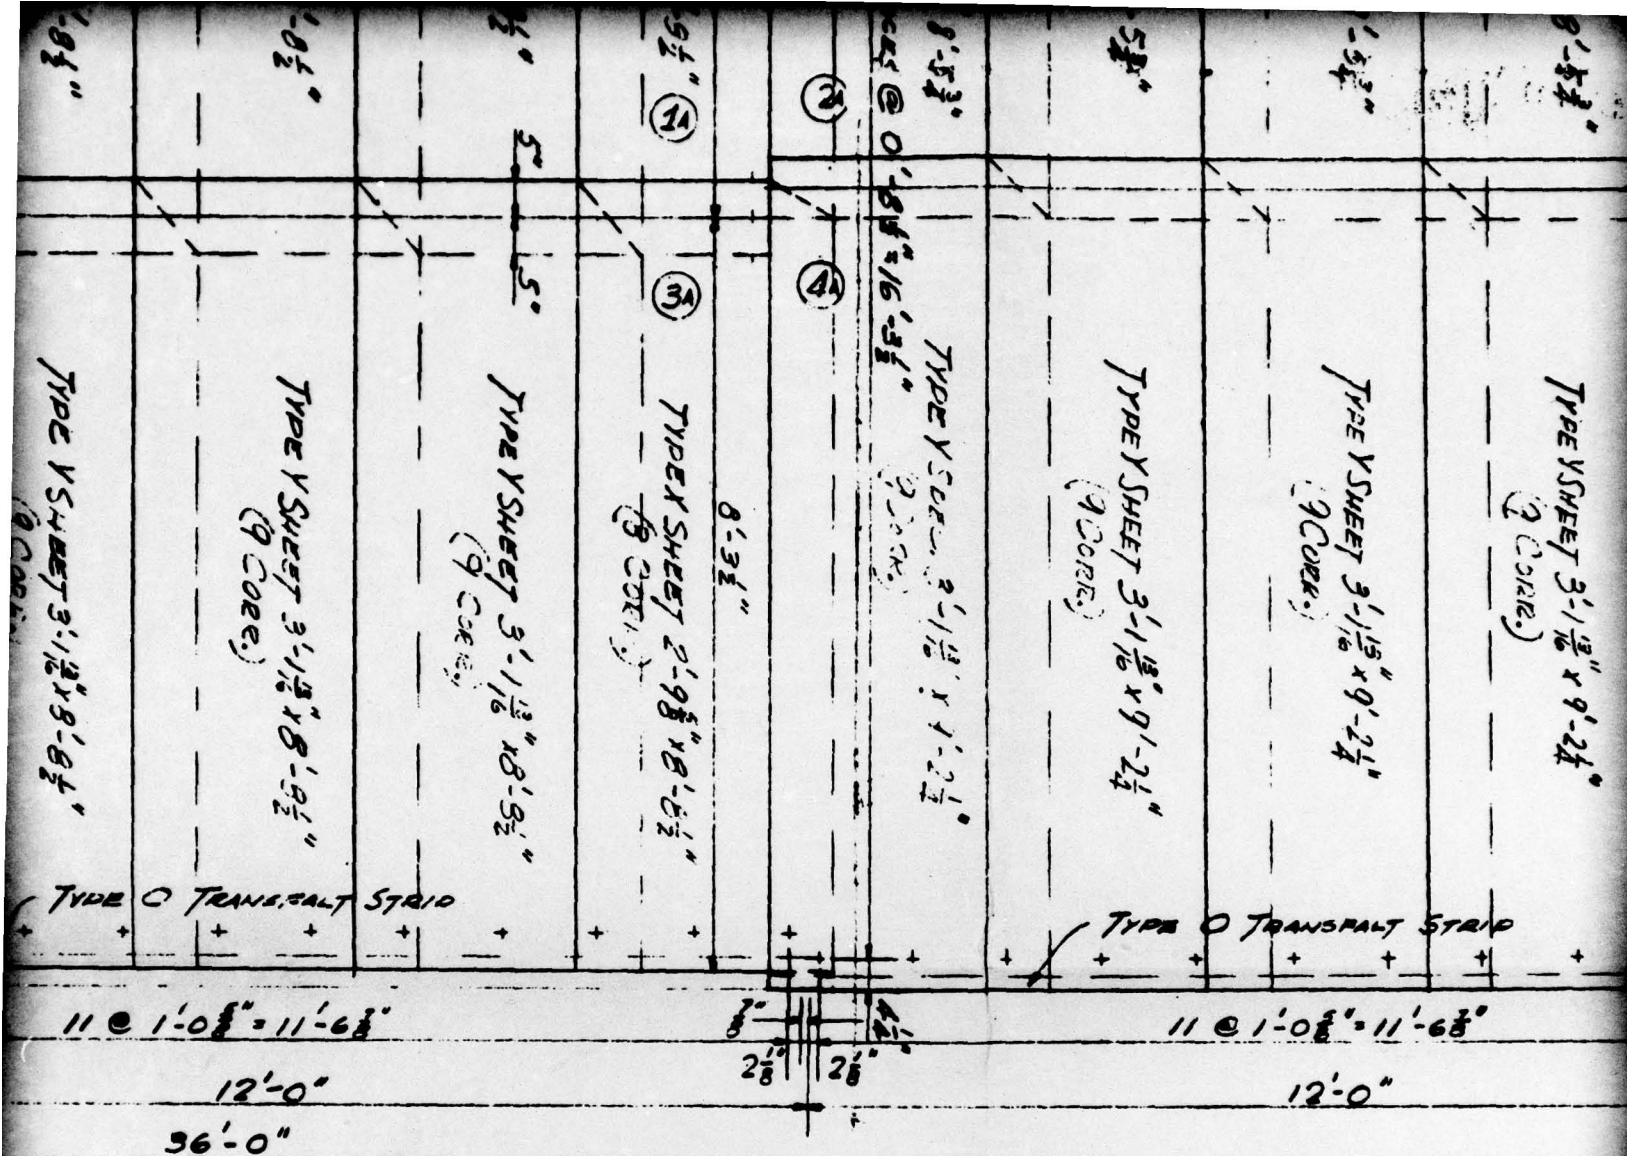 '-8½"
'-8½"
½"
9½"
8'-5¾"
-5¾"
'-5¾"
8'-5¾"
1A
2A
5"
5"
3A
4A
@ 0'-8 = 16'-3½"
TYPE Y SHEET 3'-1 13/16" x 8'-8½"
(9 CORR.)
TYPE Y SHEET 3'-1 13/16" x 8'-8½"
(9 CORR.)
TYPE Y SHEET 3'-1 13/16" x 8'-8½"
(9 CORR.)
TYPE X SHEET 2'-9⅝" x 8'-8½"
(8 CORR.)
8'-3½"
TYPE Y
TYPE Y SHEET 3'-1 13/16" x 9'-2¼"
(9 CORR.)
TYPE Y SHEET 3'-1 13/16" x 9'-2¼"
(9 CORR.)
TYPE Y SHEET 3'-1 13/16" x 9'-2¼"
(9 CORR.)
TYPE O TRANSFALT STRIP
TYPE O TRANSFALT STRIP
11 @ 1'-0⅝" = 11'-6⅞"
⅞"
4¼"
11 @ 1'-0⅝" = 11'-6⅞"
2⅛"
2⅛"
12'-0"
12'-0"
36'-0"